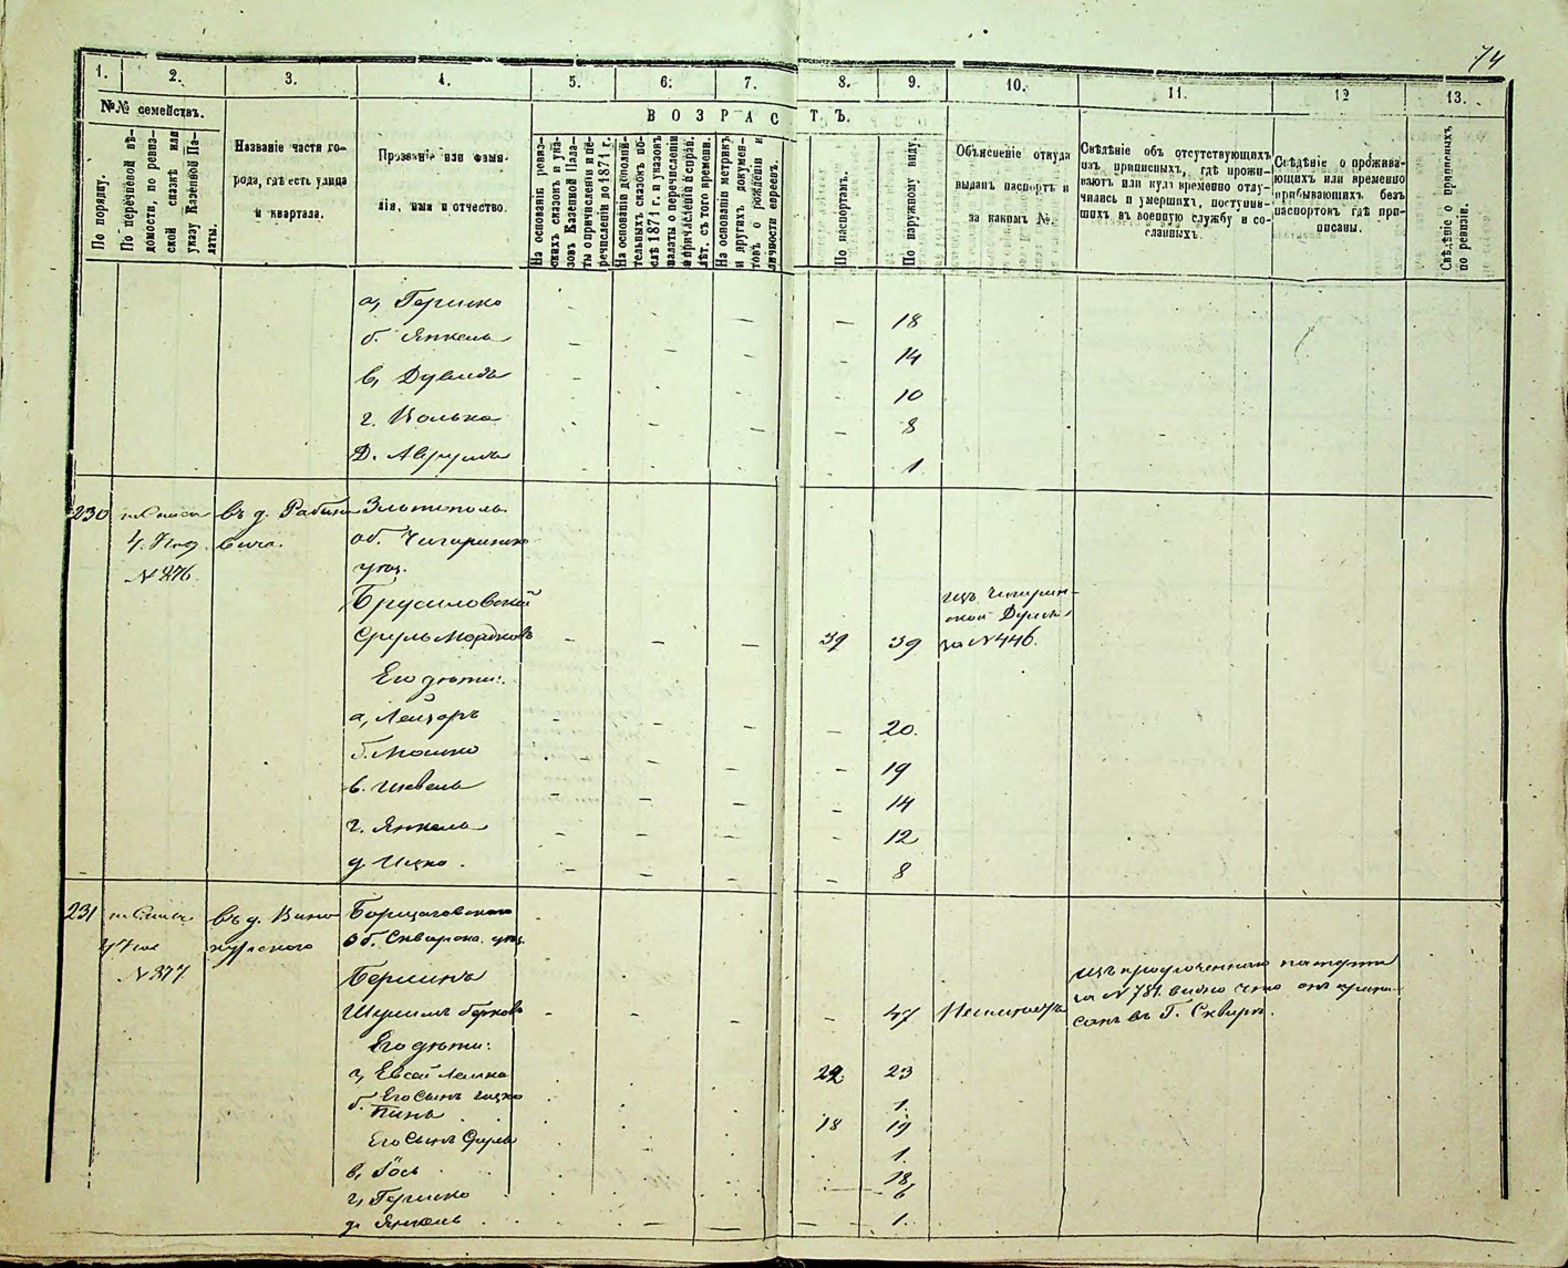 74
1. 2. 3. 4. 5. 6. 7. 8. 9. 10. 11. 12 13.
№№ семействъ.
По порядку.
По перечневой вѣ-
домости, по ревиз-
ской сказкѣ или
указу Казенной Па-
латы.
Названіе части го-
рода, гдѣ есть улица
и квартала.
Прозваніе или фами-
лія, имя и отчество.
ВОЗРАСТЪ.
На основаніи ревиз-
скихъ сказокъ и ука-
зовъ Казенной Пала-
ты о причисленіи и пе-
речисленіи до 1871 г.
На основаніи дополни-
тельныхъ сказокъ по-
слѣ 1871 г. и указовъ
палаты о перечисленіи
и причисленіи и справ.
лѣт. съ того времени.
На основаніи метрикъ
и другихъ докумен-
товъ о рожденіи и
личности евреевъ.
По паспортамъ.
По наружному виду.
Объясненіе откуда
выданъ паспортъ и
за какимъ №.
Свѣдѣніе объ отсутствующихъ
изъ приписныхъ, гдѣ прожи-
ваютъ или куда временно отлу-
чились и умершихъ, поступив-
шихъ въ военную службу и со-
сланныхъ.
Свѣдѣніе о прожива-
ющихъ или временно
прибывающихъ безъ
паспортовъ гдѣ при-
писаны.
Свѣдѣніе о приписныхъ
по ревизіи.
а, Гершко — — 18
б. Янкель — — — — 14
в, Дувидъ — — — — 10
г. Волько — — 8
д. Аврумъ — — 1
230 въ д. Раби Златополь
4. вича. об. Чигиринск
№ 376. уѣз.
Брусиловскій изъ Чигирин-
ской Думы
Сруль Мордковъ — — — 39 39 за № 446.
Его дѣти:
а, Лейзоръ — — — — 20.
б. Мошко — — — — 19
в. Шевель — — — — 14
г. Янкель — — — — 12
д Ицко. — — — — 8
231 въ д. Вино Борщаговского
курского об. Сквирско. уѣз.
№ 377 Берлинъ изъ просроченнаго паспорта
за № 781. видно что онъ припи-
Шулимъ Берковъ - - - - 47 санъ въ Г. Сквирѣ.
Его дѣти:
а, Евсей Лейко 22 23
Его Сынъ Ицко 1.
б. Пинь 18 19
Его Сынъ Сруль 1.
в, Іось 18
г, Гершко 6
д. Янкель 1.